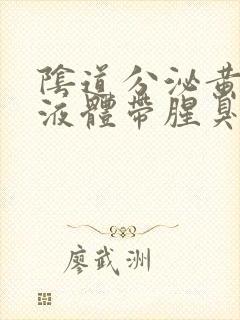 陰道分泌黃
液體帶腥臭
廖武洲